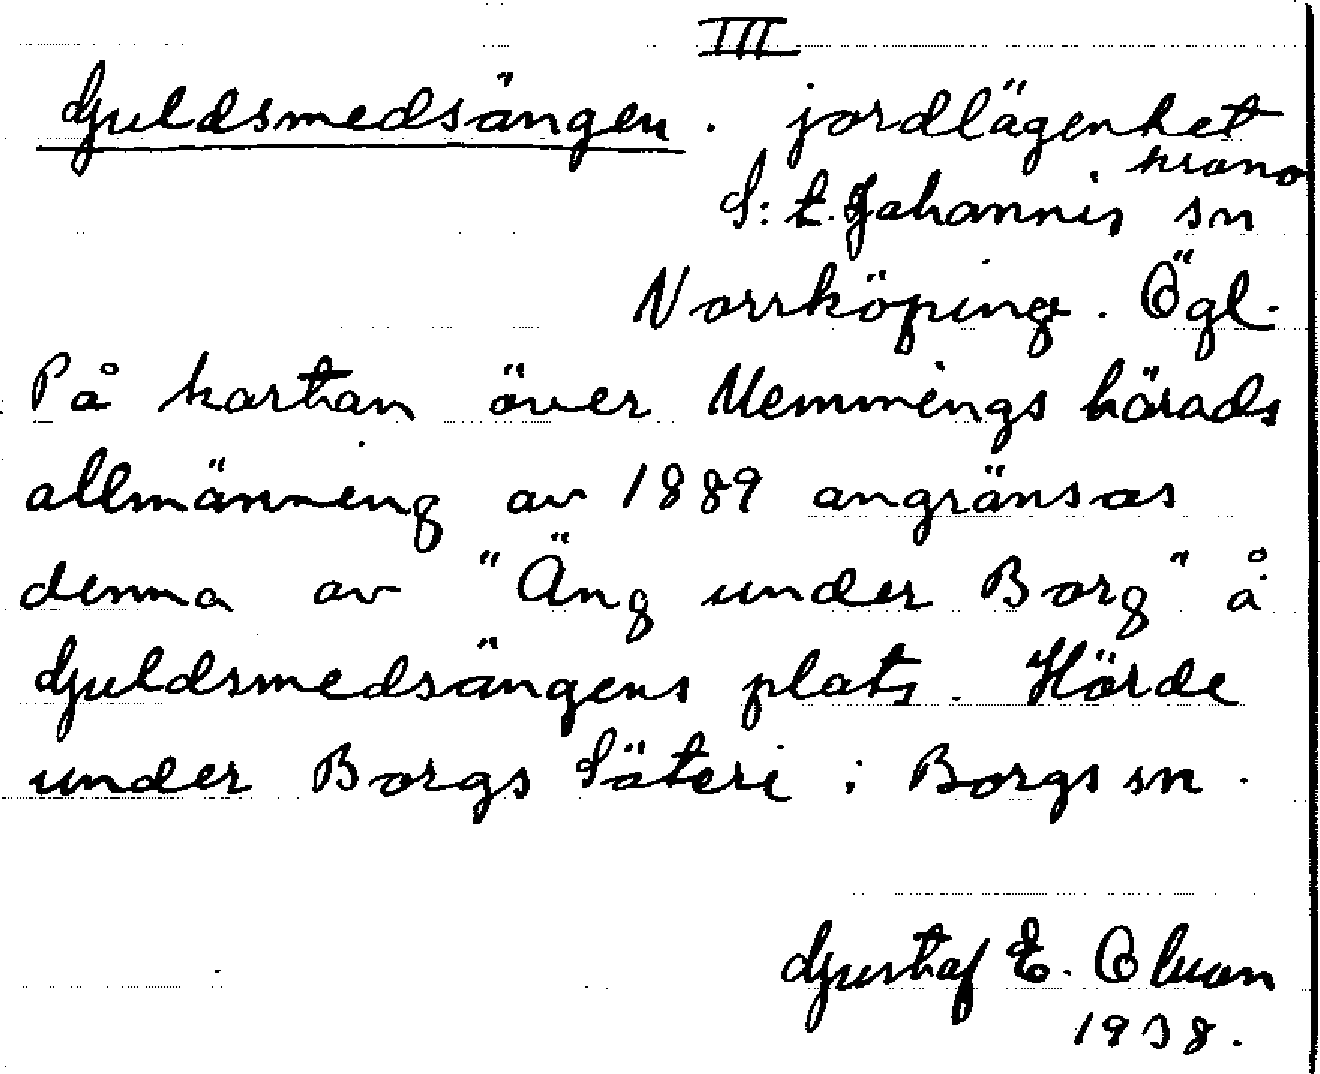 III
Guldsmedsängen. jordlägenhet
krono
S:t. Johannis sn
Norrköping. Ögl.
På kartan över Memmings härads
allmänning av 1889 angränsas
denna av "Äng under Borg" å
Guldsmedsängens plats. Hörde
under Borgs Säteri i Borgs sn.
Gustaf E. Olsson
1938.